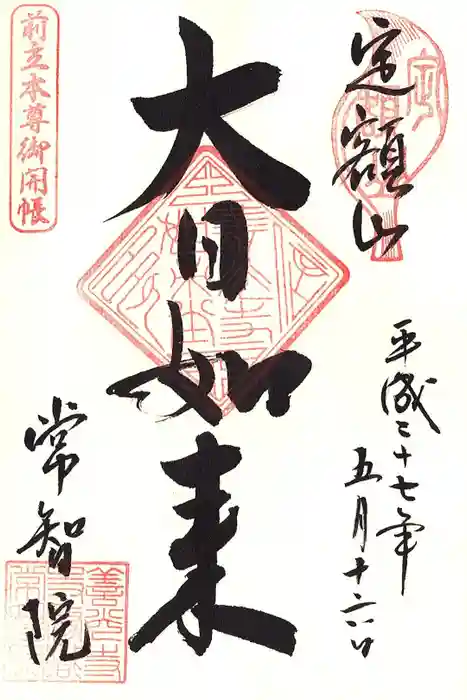 定額山
平成二十七年
五月十六日
大日如来
前立本尊御開帳
常智院
善光寺